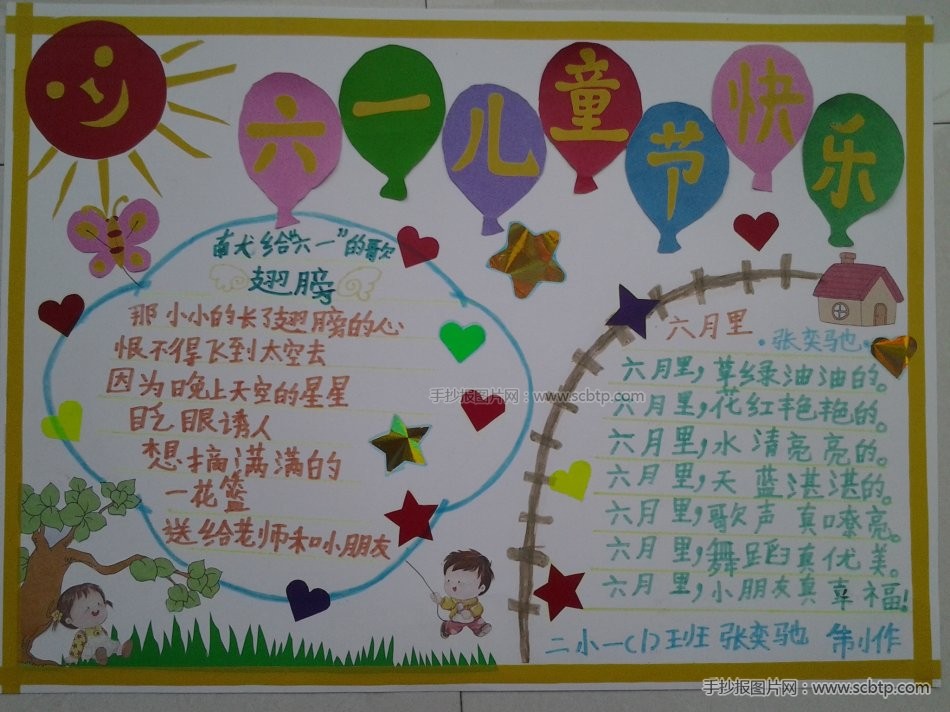 六一儿童节快乐
献给“六一”的歌
翅膀
那小小的长了翅膀的心
恨不得飞到太空去
因为晚上天空的星星
眨眼诱人
想摘满满的
一花篮
送给老师和小朋友
六月里
张奕驰
六月里,草绿油油的。
六月里,花红艳艳的。
六月里,水清亮亮的。
六月里,天蓝湛湛的。
六月里,歌声真嘹亮。
六月里,舞蹈真优美。
六月里,小朋友真幸福!
二小一(1)班 张奕驰 制作
手抄报图片网:www.scbtp.com
手抄报图片网:www.scbtp.com